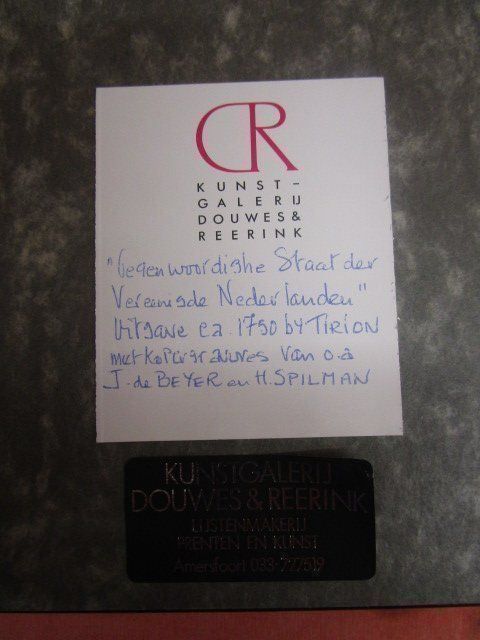 DR
KUNST-
GALERIJ
DOUWES&
REERINK
"Tegenwoordighe Staat der
Vereenigde Nederlanden"
Uitgave ca. 1750 by TIRION
met kopergravures van o.a
J. de BEYER en H. SPILMAN
KUNSTGALERIJ
DOUWES & REERINK
LIJSTENMAKERIJ
PRENTEN EN KUNST
Amersfoort 033-727519